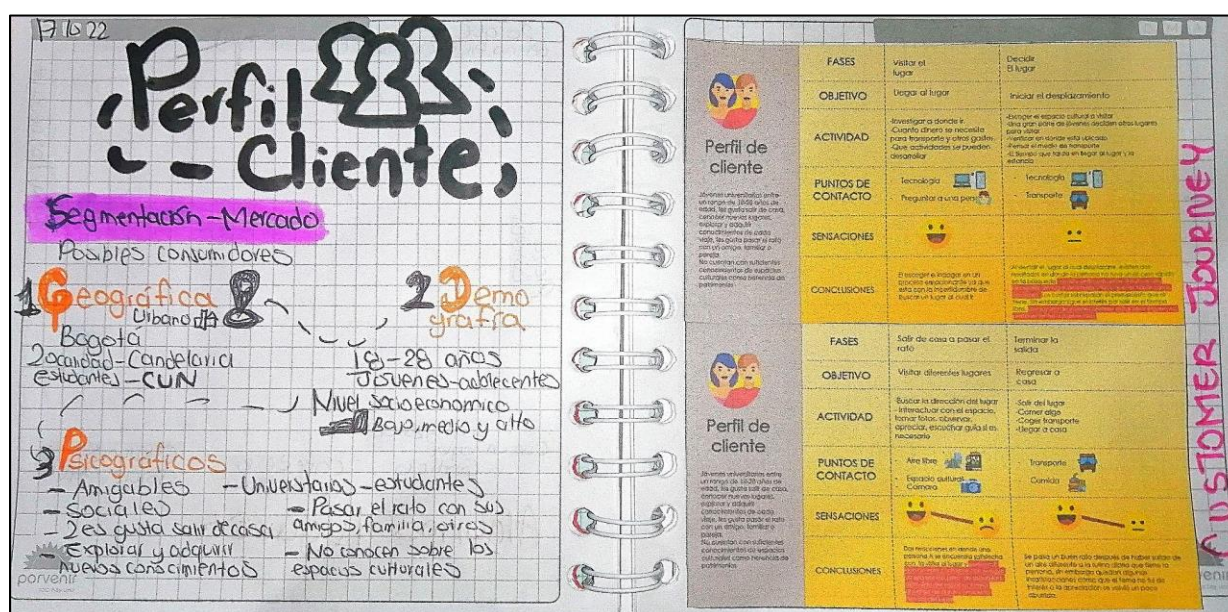 17 10 22
Perfil
Cliente
Segmentación - Mercado
Posibles consumidores
1 Geográfica
Urbano
Bogotá
Localidad - Candelaria
estudiantes - CUN
2 Demo
grafía
18 - 28 años
Jovenes - adolecentes
Nivel socioeconomico
Bajo, medio y alto
3 Psicográficos
- Amigables
- Sociales
Les gusta salir de casa
- Explorar y adquirir
nuevos conocimientos
- Universitarios - estudiantes
- Pasar el rato con sus
amigos, familia, otros
- No conocen sobre los
espacios culturales
porvenir
CUSTOMER JOURNEY
Perfil de
cliente
Jóvenes universitarios entre
un rango de 18-28 años de
edad, les gusta salir de casa,
conocer nuevos lugares,
explorar y adquirir
conocimientos de cada
viaje, les gusta pasar el rato
con un amigo, familiar o
pareja.
No cuentan con suficientes
conocimientos de espacios
culturales como
patrimonios
FASES
Visitar el
lugar
Decidir
El lugar
OBJETIVO
Llegar al lugar
Iniciar el desplazamiento
ACTIVIDAD
-Investigar a donde ir.
-Cuanto dinero se necesita
para transporte y otros gastos.
-Que actividades se pueden
desarrollar
-Escoger el espacio cultural a visitar
-Una gran parte de jóvenes deciden otros lugares
para visitar
-Verificar en donde esta ubicado
-Pensar el medio de transporte
-El tiempo que tarda en llegar al lugar y la
estancia
PUNTOS DE
CONTACTO
- Tecnología
- Preguntar a una
- Tecnología
- Transporte
SENSACIONES
CONCLUSIONES
El escoger e indagar en un
proceso emocionante ya que
esta con la incertidumbre de
Buscar un lugar al cual ir
Perfil de
cliente
Jóvenes universitarios entre
un rango de 18-28 años de
edad, les gusta salir de casa,
conocer nuevos lugares,
explorar y adquirir
conocimientos de cada
viaje, les gusta pasar el rato
con un amigo, familiar o
pareja.
No cuentan con suficientes
conocimientos de espacios
culturales como
patrimonios
FASES
Salir de casa a pasar el
rato
Terminar la
salida
OBJETIVO
Visitar diferentes lugares
Regresar a
casa
ACTIVIDAD
Buscar la dirección del lugar
-Interactuar con el espacio,
tomar fotos, observar,
apreciar, escuchar guía si es
necesario
-Salir del lugar
-Comer algo
-Coger transporte
-Llegar a casa
PUNTOS DE
CONTACTO
- Aire libre
- Espacio cultural
- Cámara
Transporte
Comida
SENSACIONES
CONCLUSIONES
Dos reacciones en donde una
persona
Se pasa un buen rato después de haber salido de
un aire diferente a la rutina diaria que tiene la
persona, sin embargo quedan algunas
como que el tema no fue de
interés o la apreciación se volvió un poco
aburrida